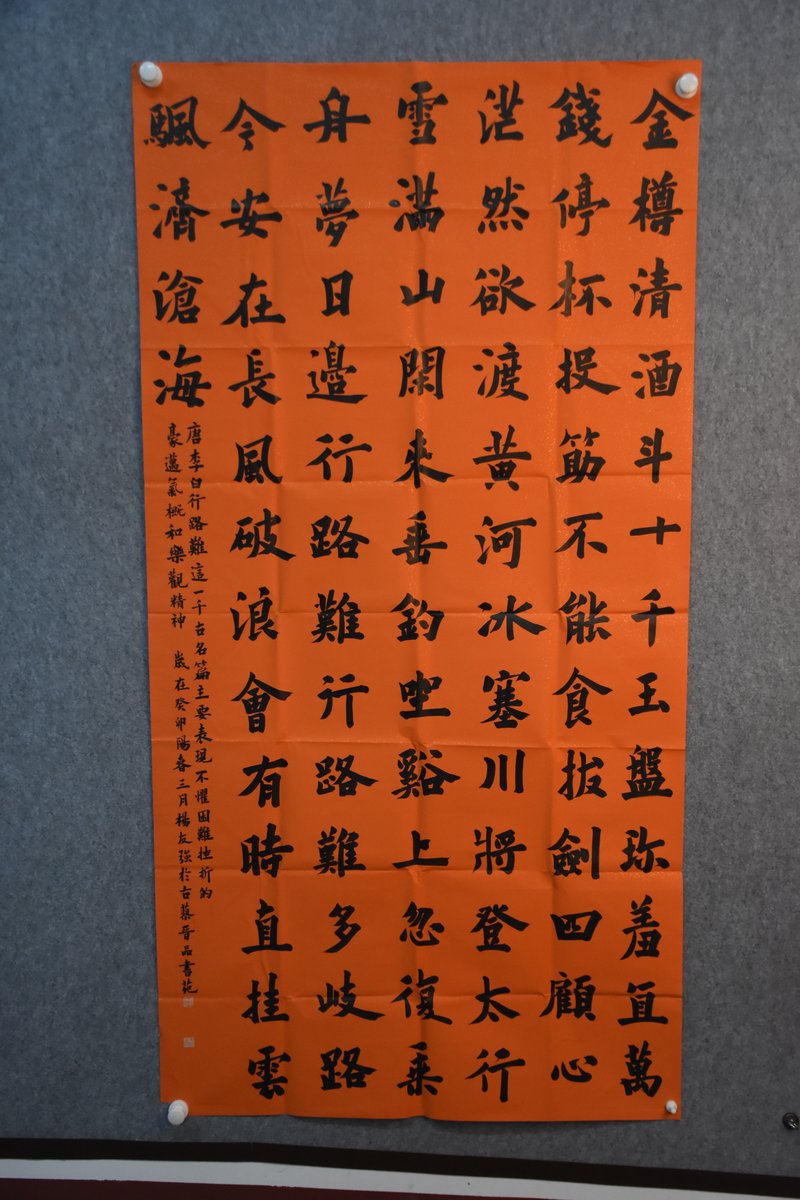 金樽清酒斗十千玉盤珎羞直萬
錢停杯投筯不能食拔劍四顧心
茫然欲渡黃河冰塞川將登太行
雪滿山閑來垂釣坐谿上忽復乗
舟夢日邊行路難行路難多岐路
今安在長風破浪會有時直挂雲
颿濟滄海
唐李白行路難這一千古名篇主要表現不懼困難挫折的
豪邁氣概和樂觀精神 歲在癸卯陽春三月楊友强於古蔡晉品書苑